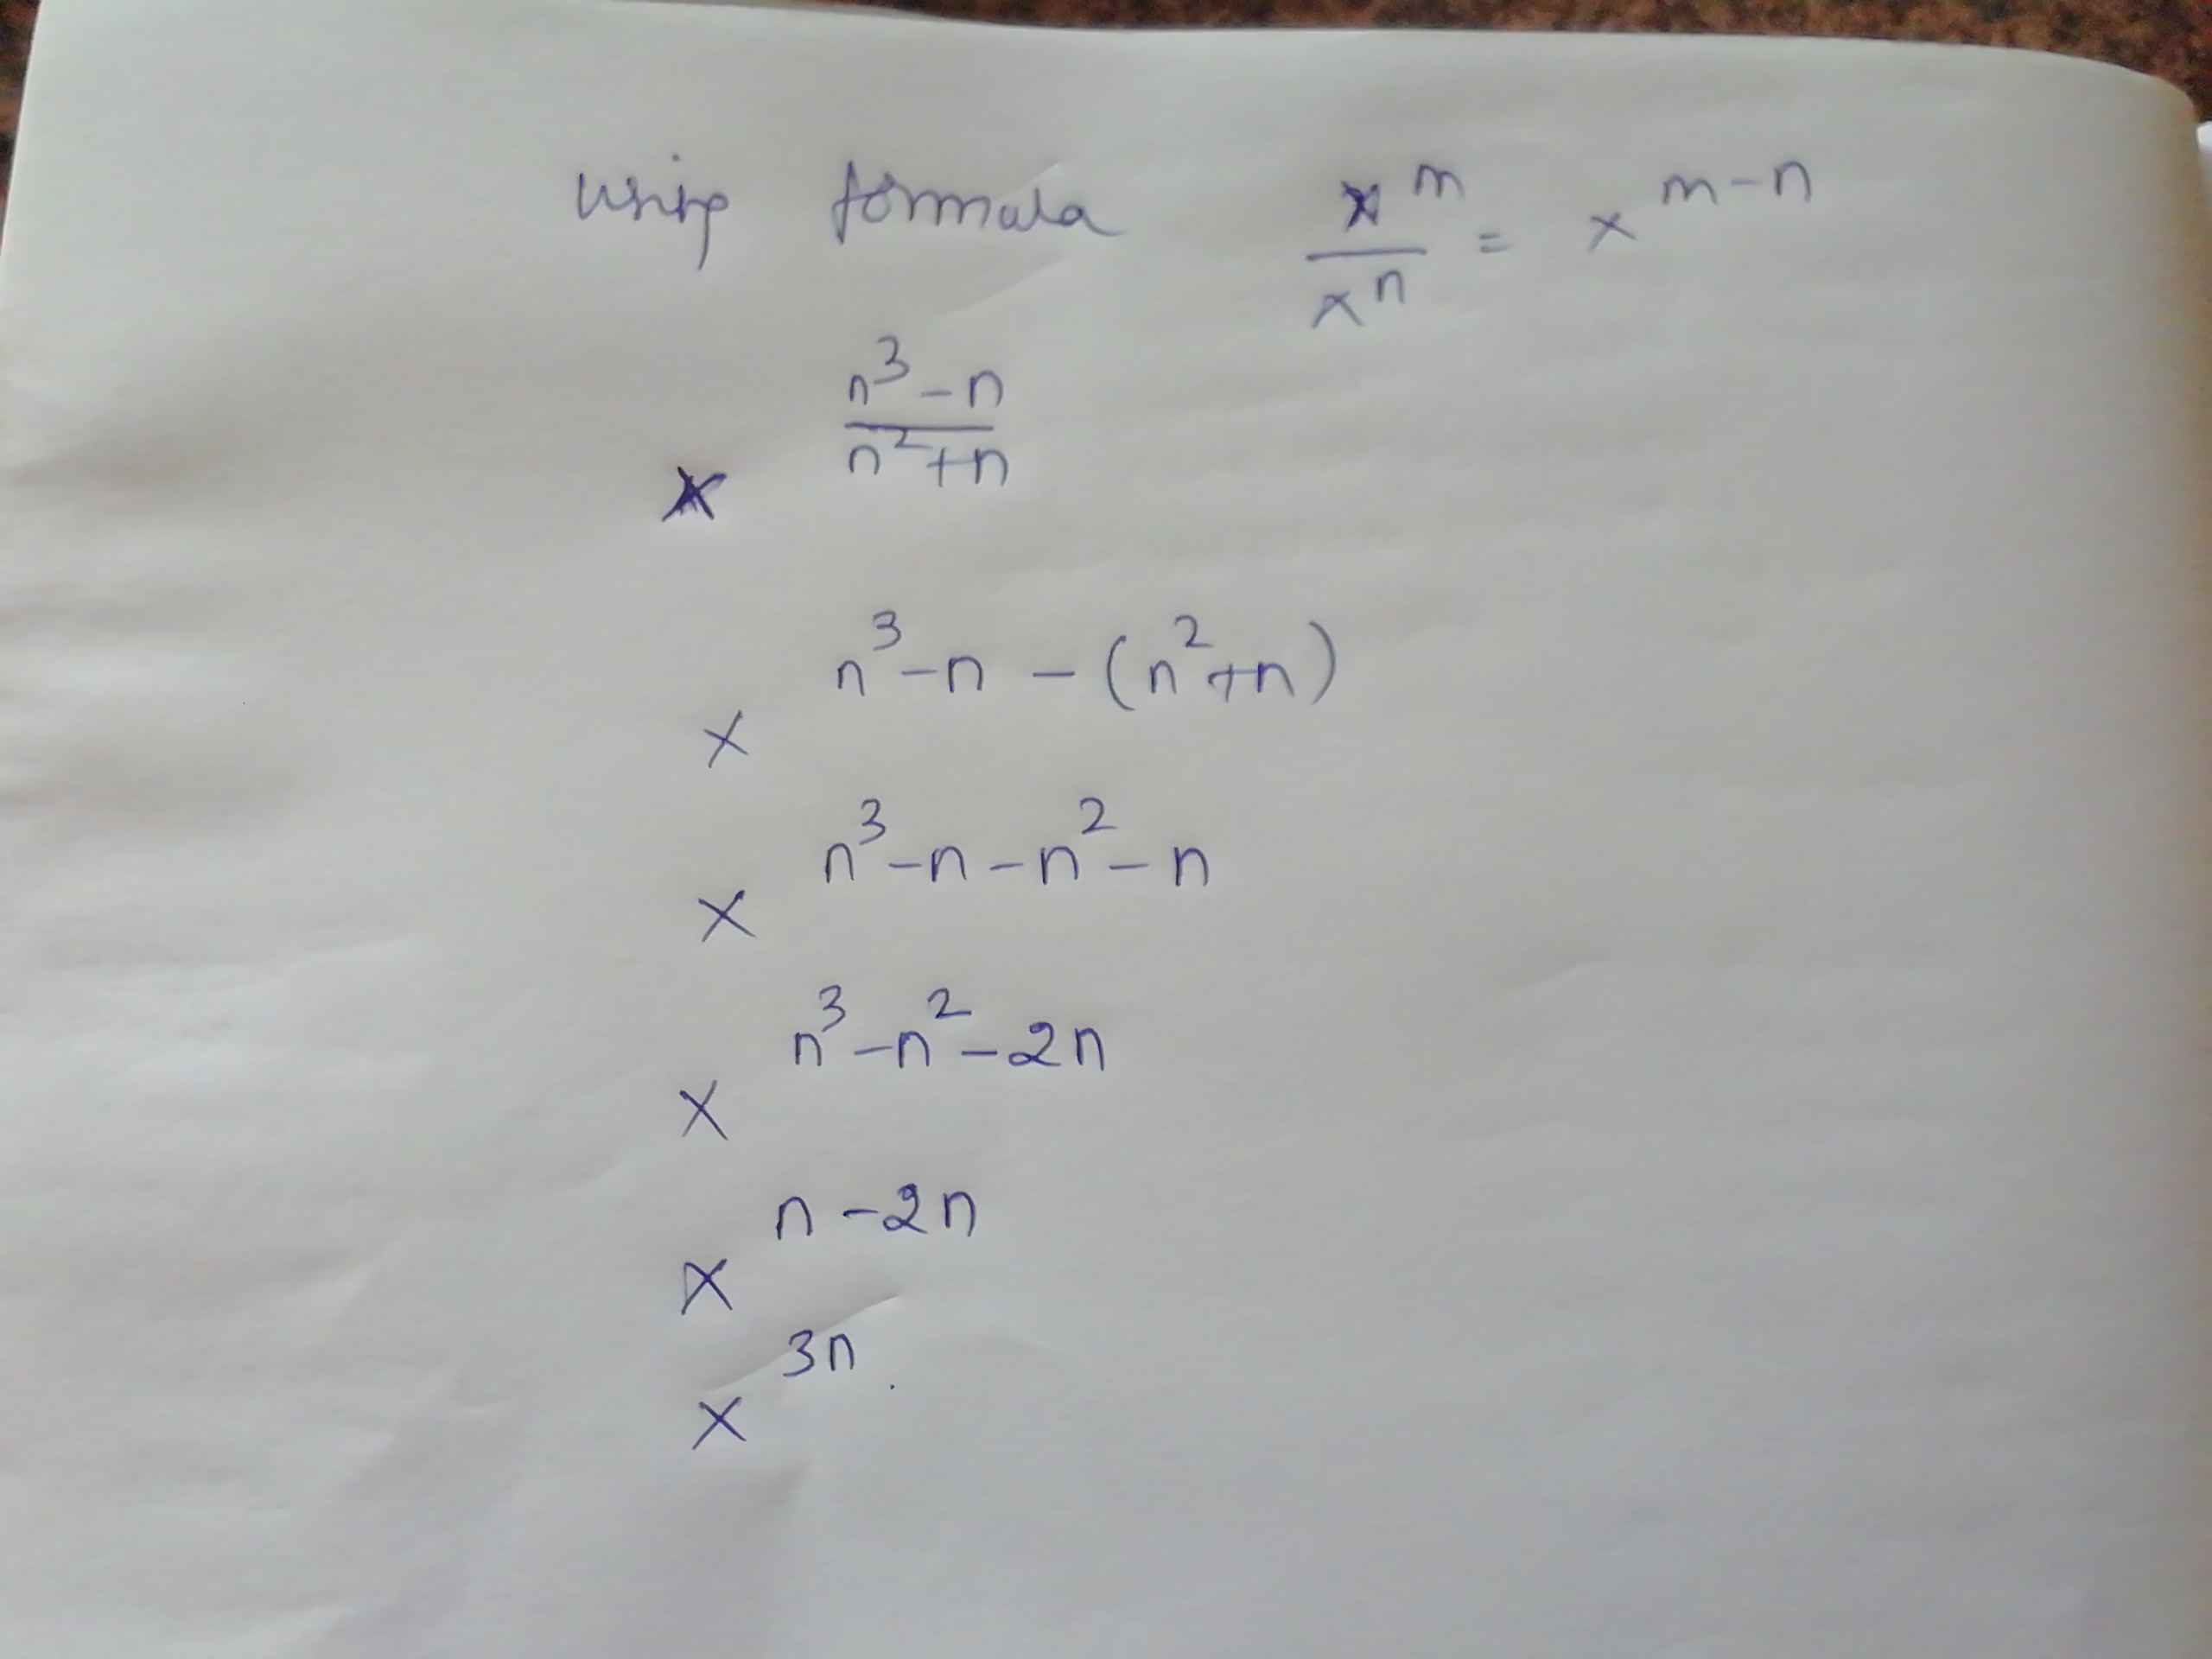 using formula x^m / x^n = x^(m-n)
x^((n^3-n)/(n^2+n))
x^(n^3-n-(n^2+n))
x^(n^3-n-n^2-n)
x^(n^3-n^2-2n)
x^(n-2n)
x^(3n).